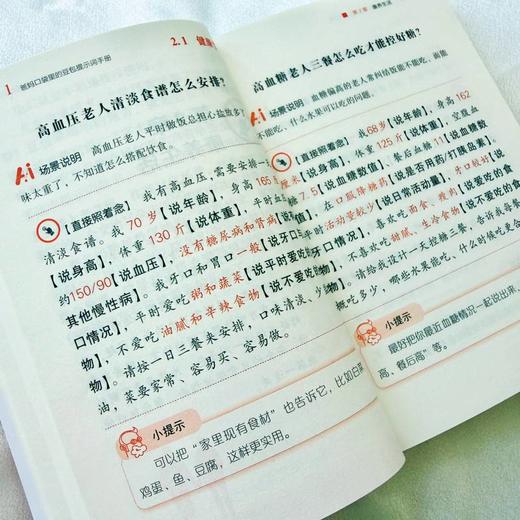 1
爸妈口袋里的豆包提示词手册
2.1
高血压老人清淡食谱怎么安排?
Ai 场景说明 高血压老人平时做饭总担心盐放多了
味太重了,不知道怎么搭配饮食。
【直接照着念】 我有高血压,需要安排一
清淡食谱。我 70 岁【说年龄】,身高 165
【说身高】,体重 130 斤【说体重】,平时
约150/90【说血压】,没有糖尿病和肾病
其他慢性病】。我牙口和胃口一般【说牙口与
口情况】,平时爱吃粥和蔬菜【说平时爱吃
物】,不爱吃油腻和辛辣食物【说不爱吃
物】。请按一日三餐来安排,口味清淡、少
油,菜要家常、容易买、容易做。
小提示
可以把“家里现有食材”也告诉它,比如白菜
鸡蛋、鱼、豆腐,这样更实用。
第 2 章 康养生活
高血糖老人三餐怎么吃才能控好糖?
Ai 场景说明 血糖偏高的老人常纠结饭能不能吃、面能
不能吃、什么水果可以吃的问题。
【直接照着念】 我68岁【说年龄】,身高 162
厘米【说身高】,体重 125 斤【说体重】,空腹血
糖 7.5【说血糖数值】,餐后血糖 11【说血糖数
值】,在口服降糖药【说是否用药/打胰岛素】,
平时活动量较少【说日常活动量】,牙口较好【说
牙口情况】。喜欢吃面食、瘦肉【说爱吃的食
物】,不喜欢吃甜腻、生冷食物【说不爱吃的食
物】。请给我设计一天控糖三餐,告诉我每餐
概吃多少,哪些水果能吃、什么时候吃更合
小提示
最好把你最近血糖情况一起说出来,
高、餐后高”等。